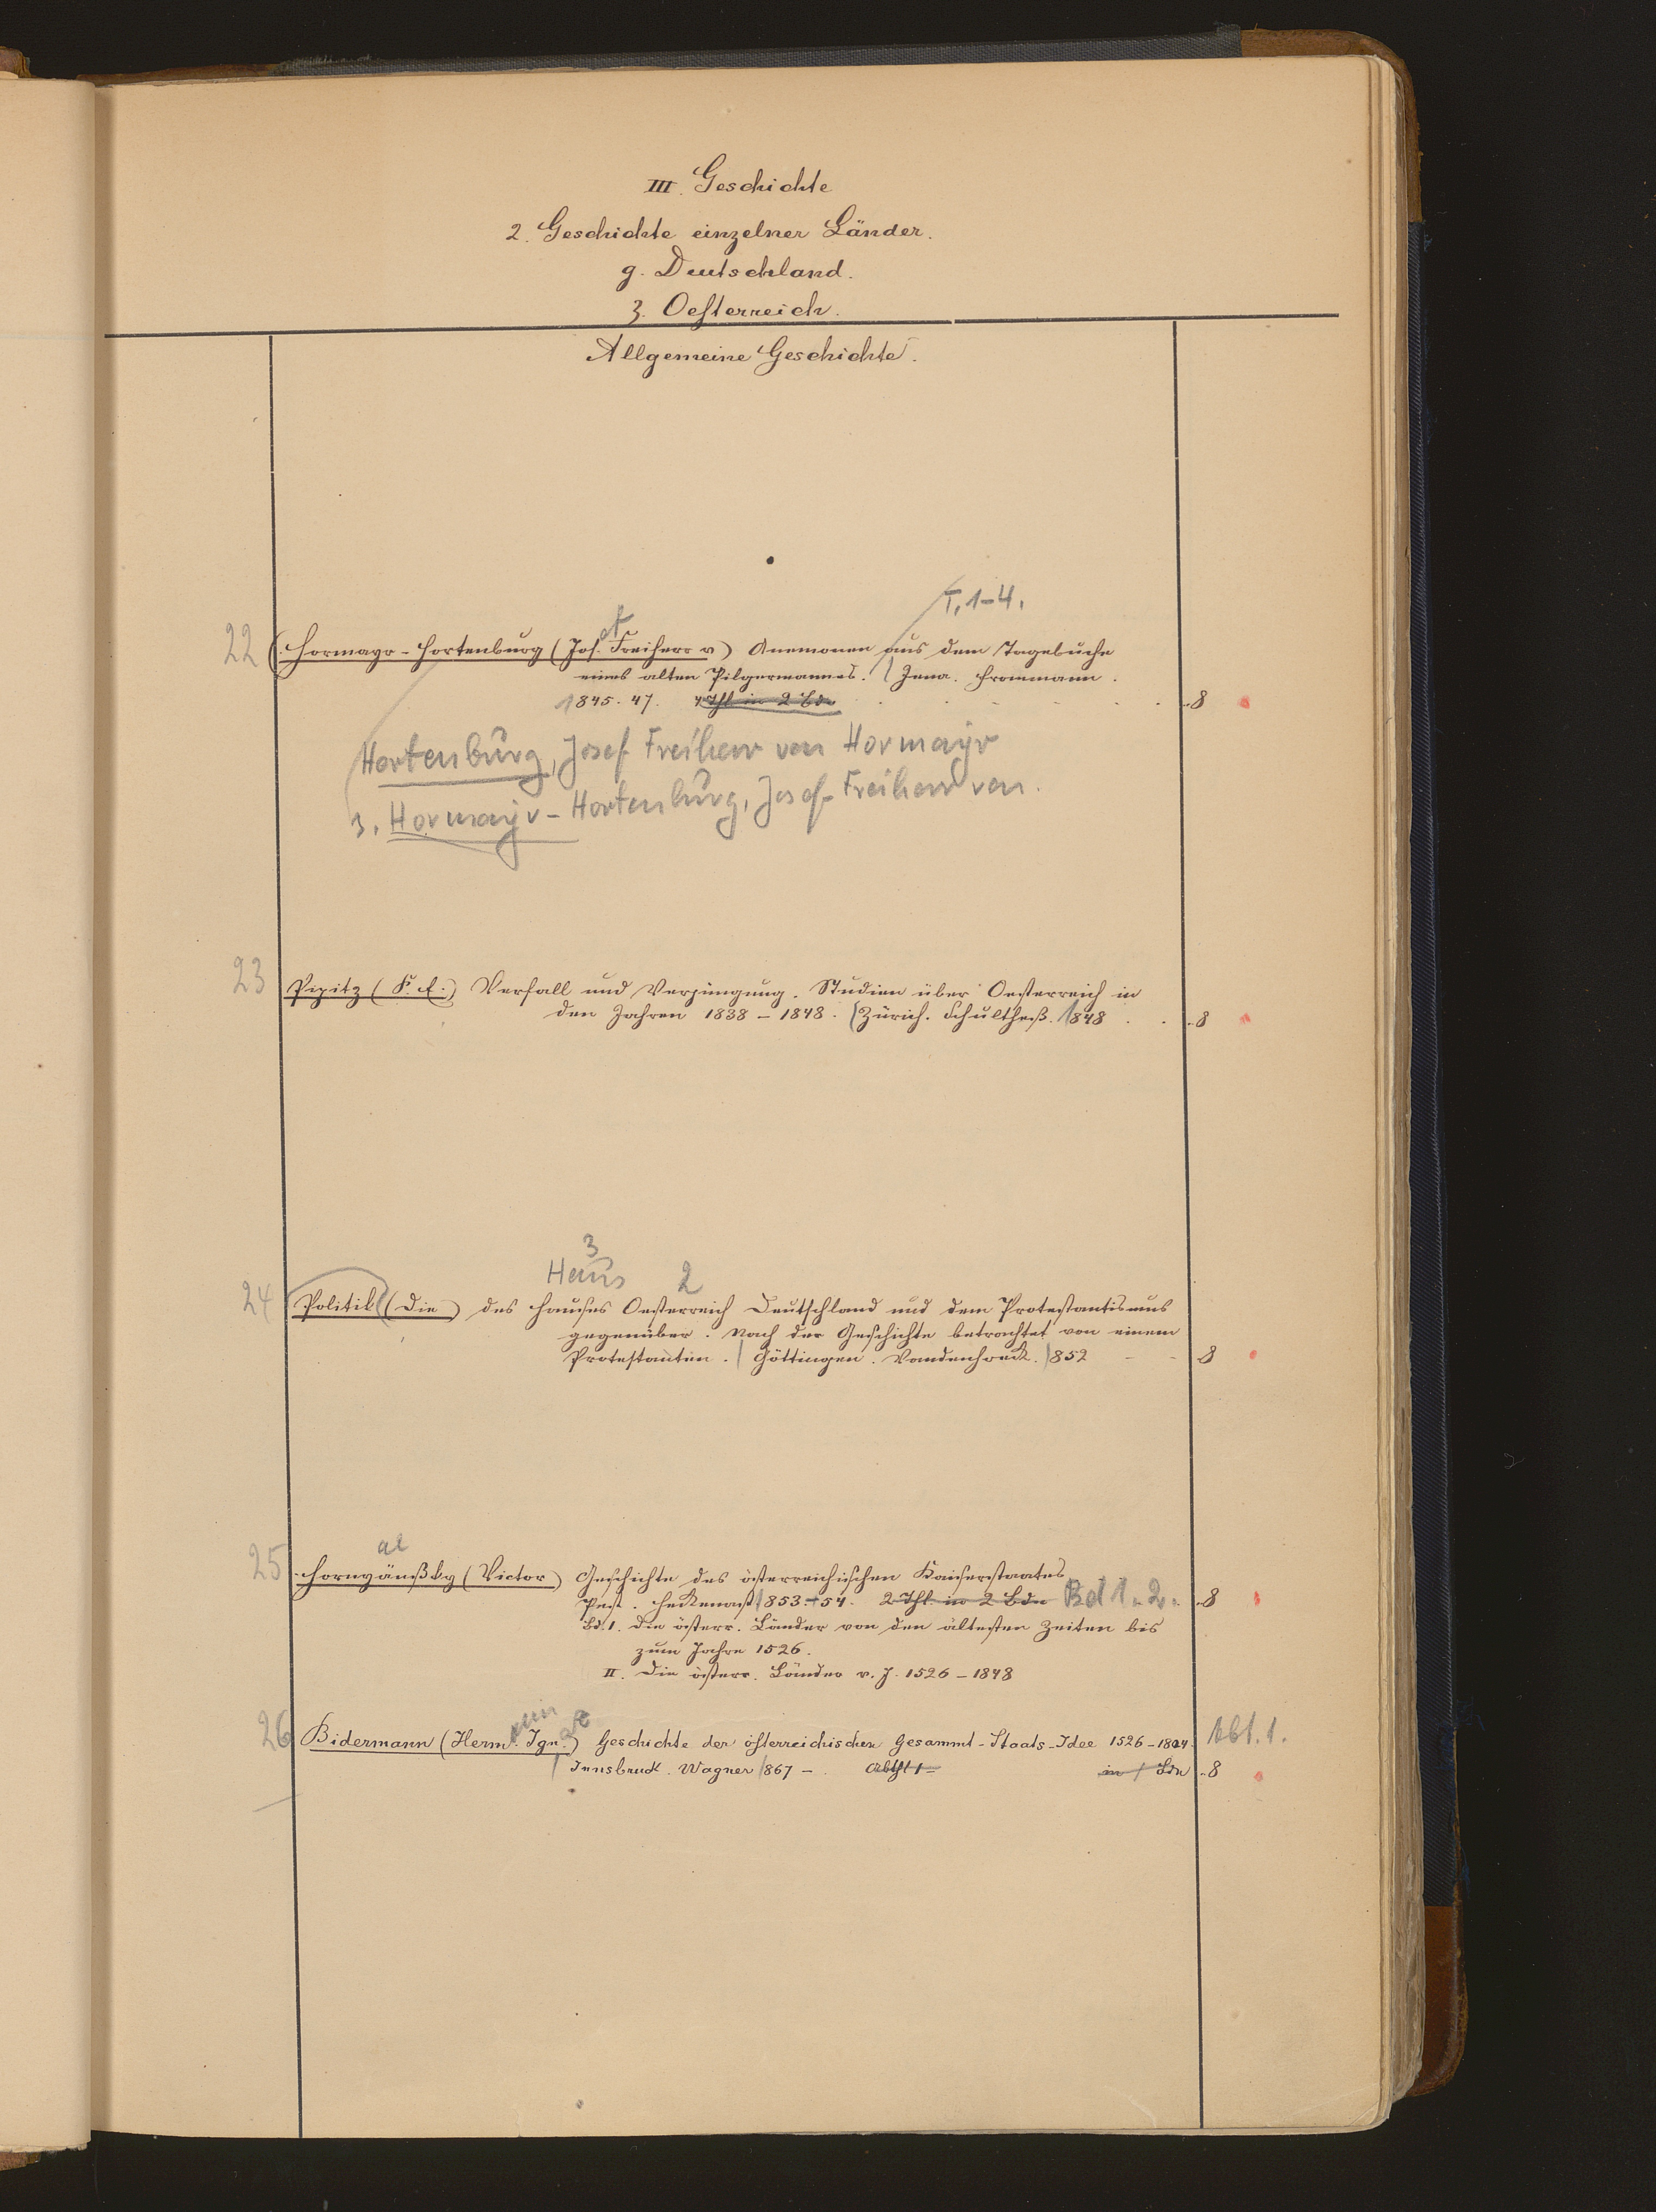 III. Geschichte
2. Geschichte einzelner Länder.
g. Deutschland.
3. Oesterreich.
Allgemeine Geschichte.
T. 1-4.
22 Hormayr-Hortenburg (Jos. Freiherr v) Anemonen aus dem Tagebuche
eines alten Pilgermannes. Jena. Frommann.
1845. 47. 4 Thl in 2 Bdn 8
Hortenburg, Josef Freiherr von Hormayr
s. Hormayr-Hortenburg, Josef Freiherr von.
23 Pipitz (F. E.) Verfall und Verjüngung. Studien über Oesterreich in
den Jahren 1838-1848. Zürich. Schultheß. 1848 8
3
Haus 2
24 Politik (Die) des Hauses Oesterreich Deutschland und dem Protestantismus
gegenüber. Nach der Geschichte betrachtet von einem
Protestanten. Göttingen. Vandenhoeck. 1852 8
25 Hornyánßky (Victor) Geschichte des österreichischen Kaiserstaates
Pest. Heckenast 1853-54. 2 Thl in 2 Bdn Bd 1. 2. 8
Bd. 1. Die österr. Länder von den ältesten Zeiten bis
zum Jahre 1526.
II. Die österr. Länder v. J. 1526-1848
26 Bidermann (Herm. Ign.) Geschichte der österreichischen Gesammt-Staats-Idee 1526-1804. Abt. 1.
Innsbruck. Wagner 1867 -. Abthl 1- in 1 Bdn 8